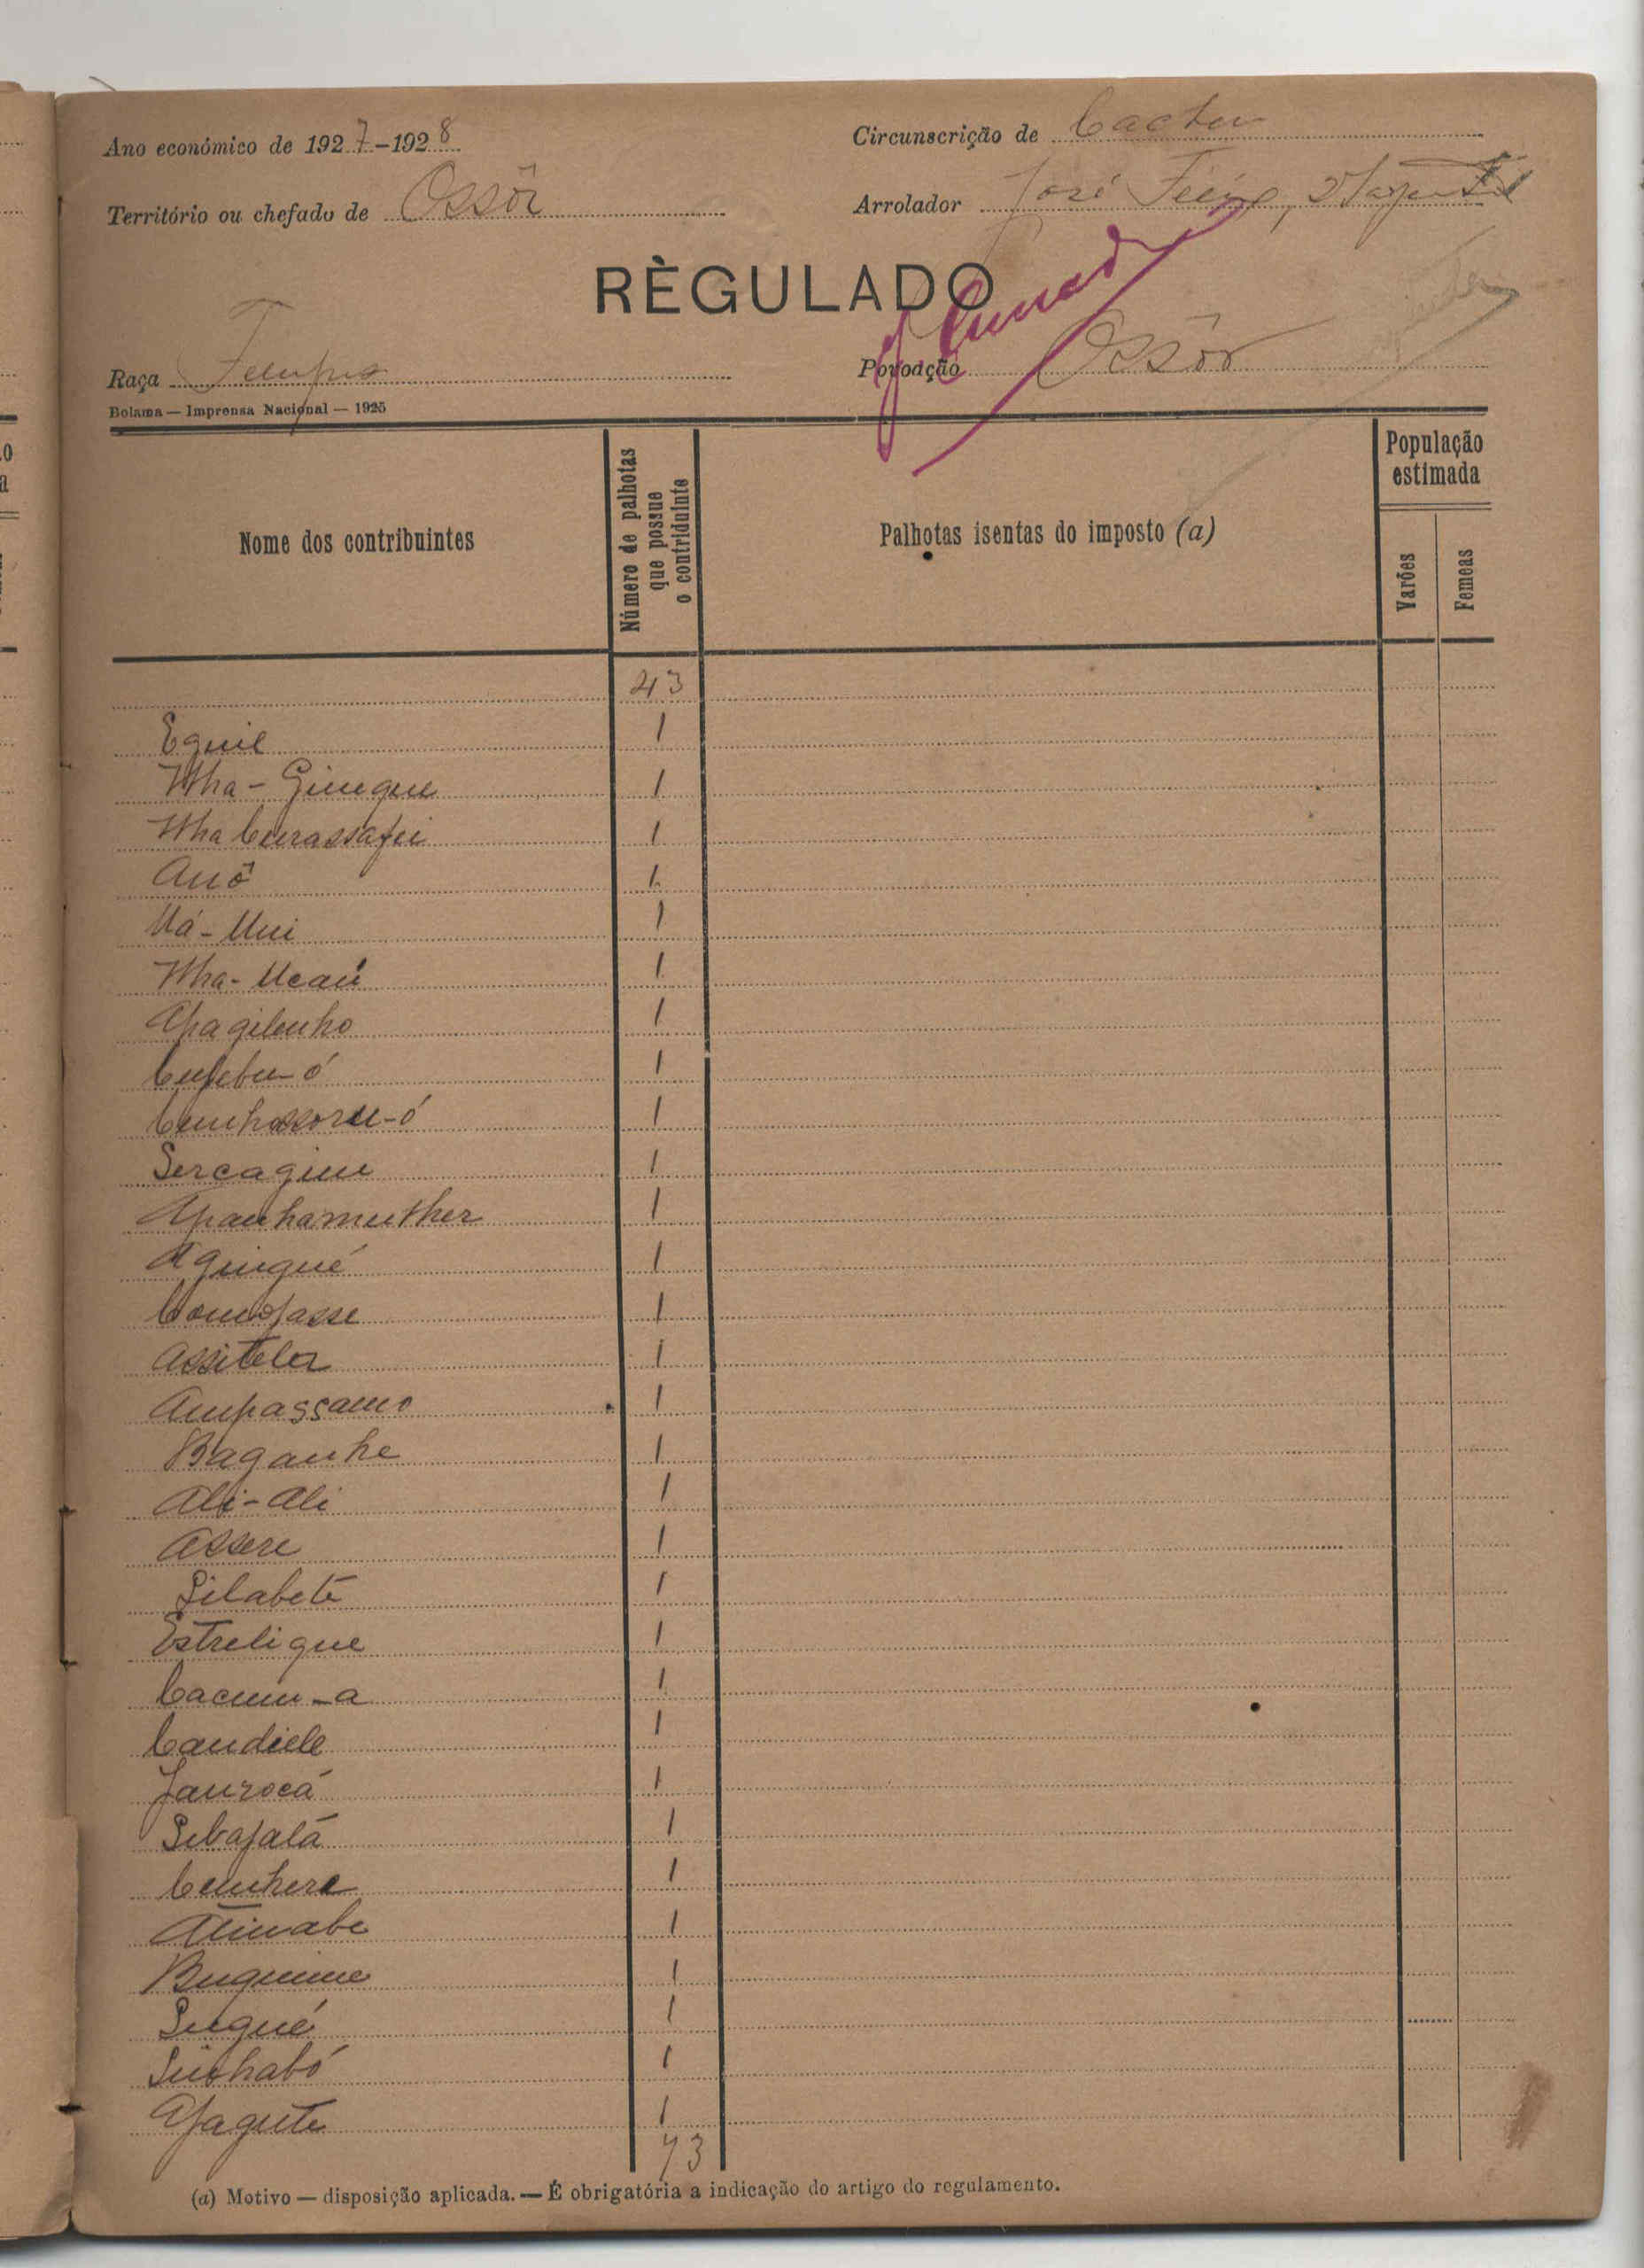 Ano económico de 1927-1928
Circunscrição de Cacheu
Território ou chefado de Ossôr
Arrolador José
RÈGULADO
Raça Felupes
Povoação Ossôr
Bolama — Imprensa Nacional — 1925
Nome dos contribuintes
Número de palhotas
que possue
o contriduinte
Palhotas isentas do imposto (a)
População
estimada
Varões
Femeas
43
Equil 1
Nha-Guinque 1
Nha Curassafei 1
Anô 1
Uá-Uui 1
Nha-Ucaú 1
Apagilenho 1
1
Cunhassoru-ó 1
Sercagun 1
Apanhamulher 1
Aguigué 1
1
Assitela 1
Ampassamo 1
Baganhe 1
Ali-Ali 1
Assere 1
Silabeté 1
Estrelique 1
Cacum-a 1
Candiele 1
Jaurocá 1
Sibajatá 1
Cunhere 1
Atinabe 1
Buquime 1
Sugué 1
Sinhabó 1
Ajagute 1
73
(a) Motivo — disposição aplicada. — É obrigatória a indicação do artigo do regulamento.